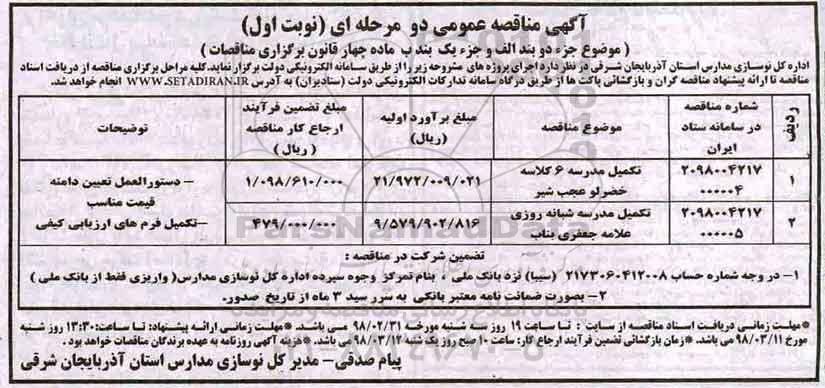 آگهی مناقصه عمومی دو مرحله ای (نوبت اول)
( موضوع جزء دو بند الف و جزء یک بند ب ماده چهار قانون برگزاری مناقصات )
اداره کل نوسازی مدارس استان آذربایجان شرقی در نظر دارد اجرای پروژه های مشروحه زیر را از طریق سامانه الکترونیکی دولت برگزار نماید. کلیه مراحل برگزاری مناقصه از دریافت اسناد
مناقصه تا ارائه پیشنهاد مناقصه گران و بازگشائی پاکت ها از طریق درگاه سامانه تدارکات الکترونیکی دولت (ستاد ایران) به آدرس WWW.SETADIRAN.IR انجام خواهد شد.
ردیف
شماره مناقصه
در سامانه ستاد
ایران
موضوع مناقصه
مبلغ برآورد اولیه
(ریال)
مبلغ تضمین فرآیند
ارجاع کار مناقصه
( ریال )
توضیحات
۱
۲۰۹۸۰۰۴۲۱۷
۰۰۰۰۰۴
تکمیل مدرسه ۶ کلاسه
خضرلو عجب شیر
۲۱/۹۷۲/۰۰۹/۰۲۱
۱/۰۹۸/۶۱۰/۰۰۰
– دستورالعمل تعیین دامنه
قیمت مناسب
–تکمیل فرم های ارزیابی کیفی
۲
۲۰۹۸۰۰۴۲۱۷
۰۰۰۰۰۵
تکمیل مدرسه شبانه روزی
علامه جعفری بناب
۹/۵۷۹/۹۰۲/۸۱۶
۴۷۹/۰۰۰/۰۰۰
تضمین شرکت در مناقصه :
۱– در وجه شماره حساب ۲۱۷۳۰۶۰۴۱۲۰۰۸ (سیبا) نزد بانک ملی ، بنام تمرکز وجوه سپرده اداره کل نوسازی مدارس( واریزی فقط از بانک ملی )
۲– بصورت ضمانت نامه معتبر بانکی به سرر سید ۳ ماه از تاریخ صدور.
*مهلت زمانی دریافت اسناد مناقصه از سایت : تا ساعت ۱۹ روز سه شنبه مورخه ۹۸/۰۲/۳۱ می باشد. *مهلت زمانی ارائه پیشنهاد: تا ساعت: ۱۳:۳۰ روز شنبه
مورخ ۹۸/۰۳/۱۱ می باشد. *زمان بازگشائی تضمین فرآیند ارجاع کار: ساعت ۱۰ صبح روز یک شنبه ۹۸/۰۳/۱۲ می باشد. *هزینه آگهی روزنامه به عهده برندگان مناقصات خواهد بود .
پیام صدقی – مدیر کل نوسازی مدارس استان آذربایجان شرقی
ParsNamadData